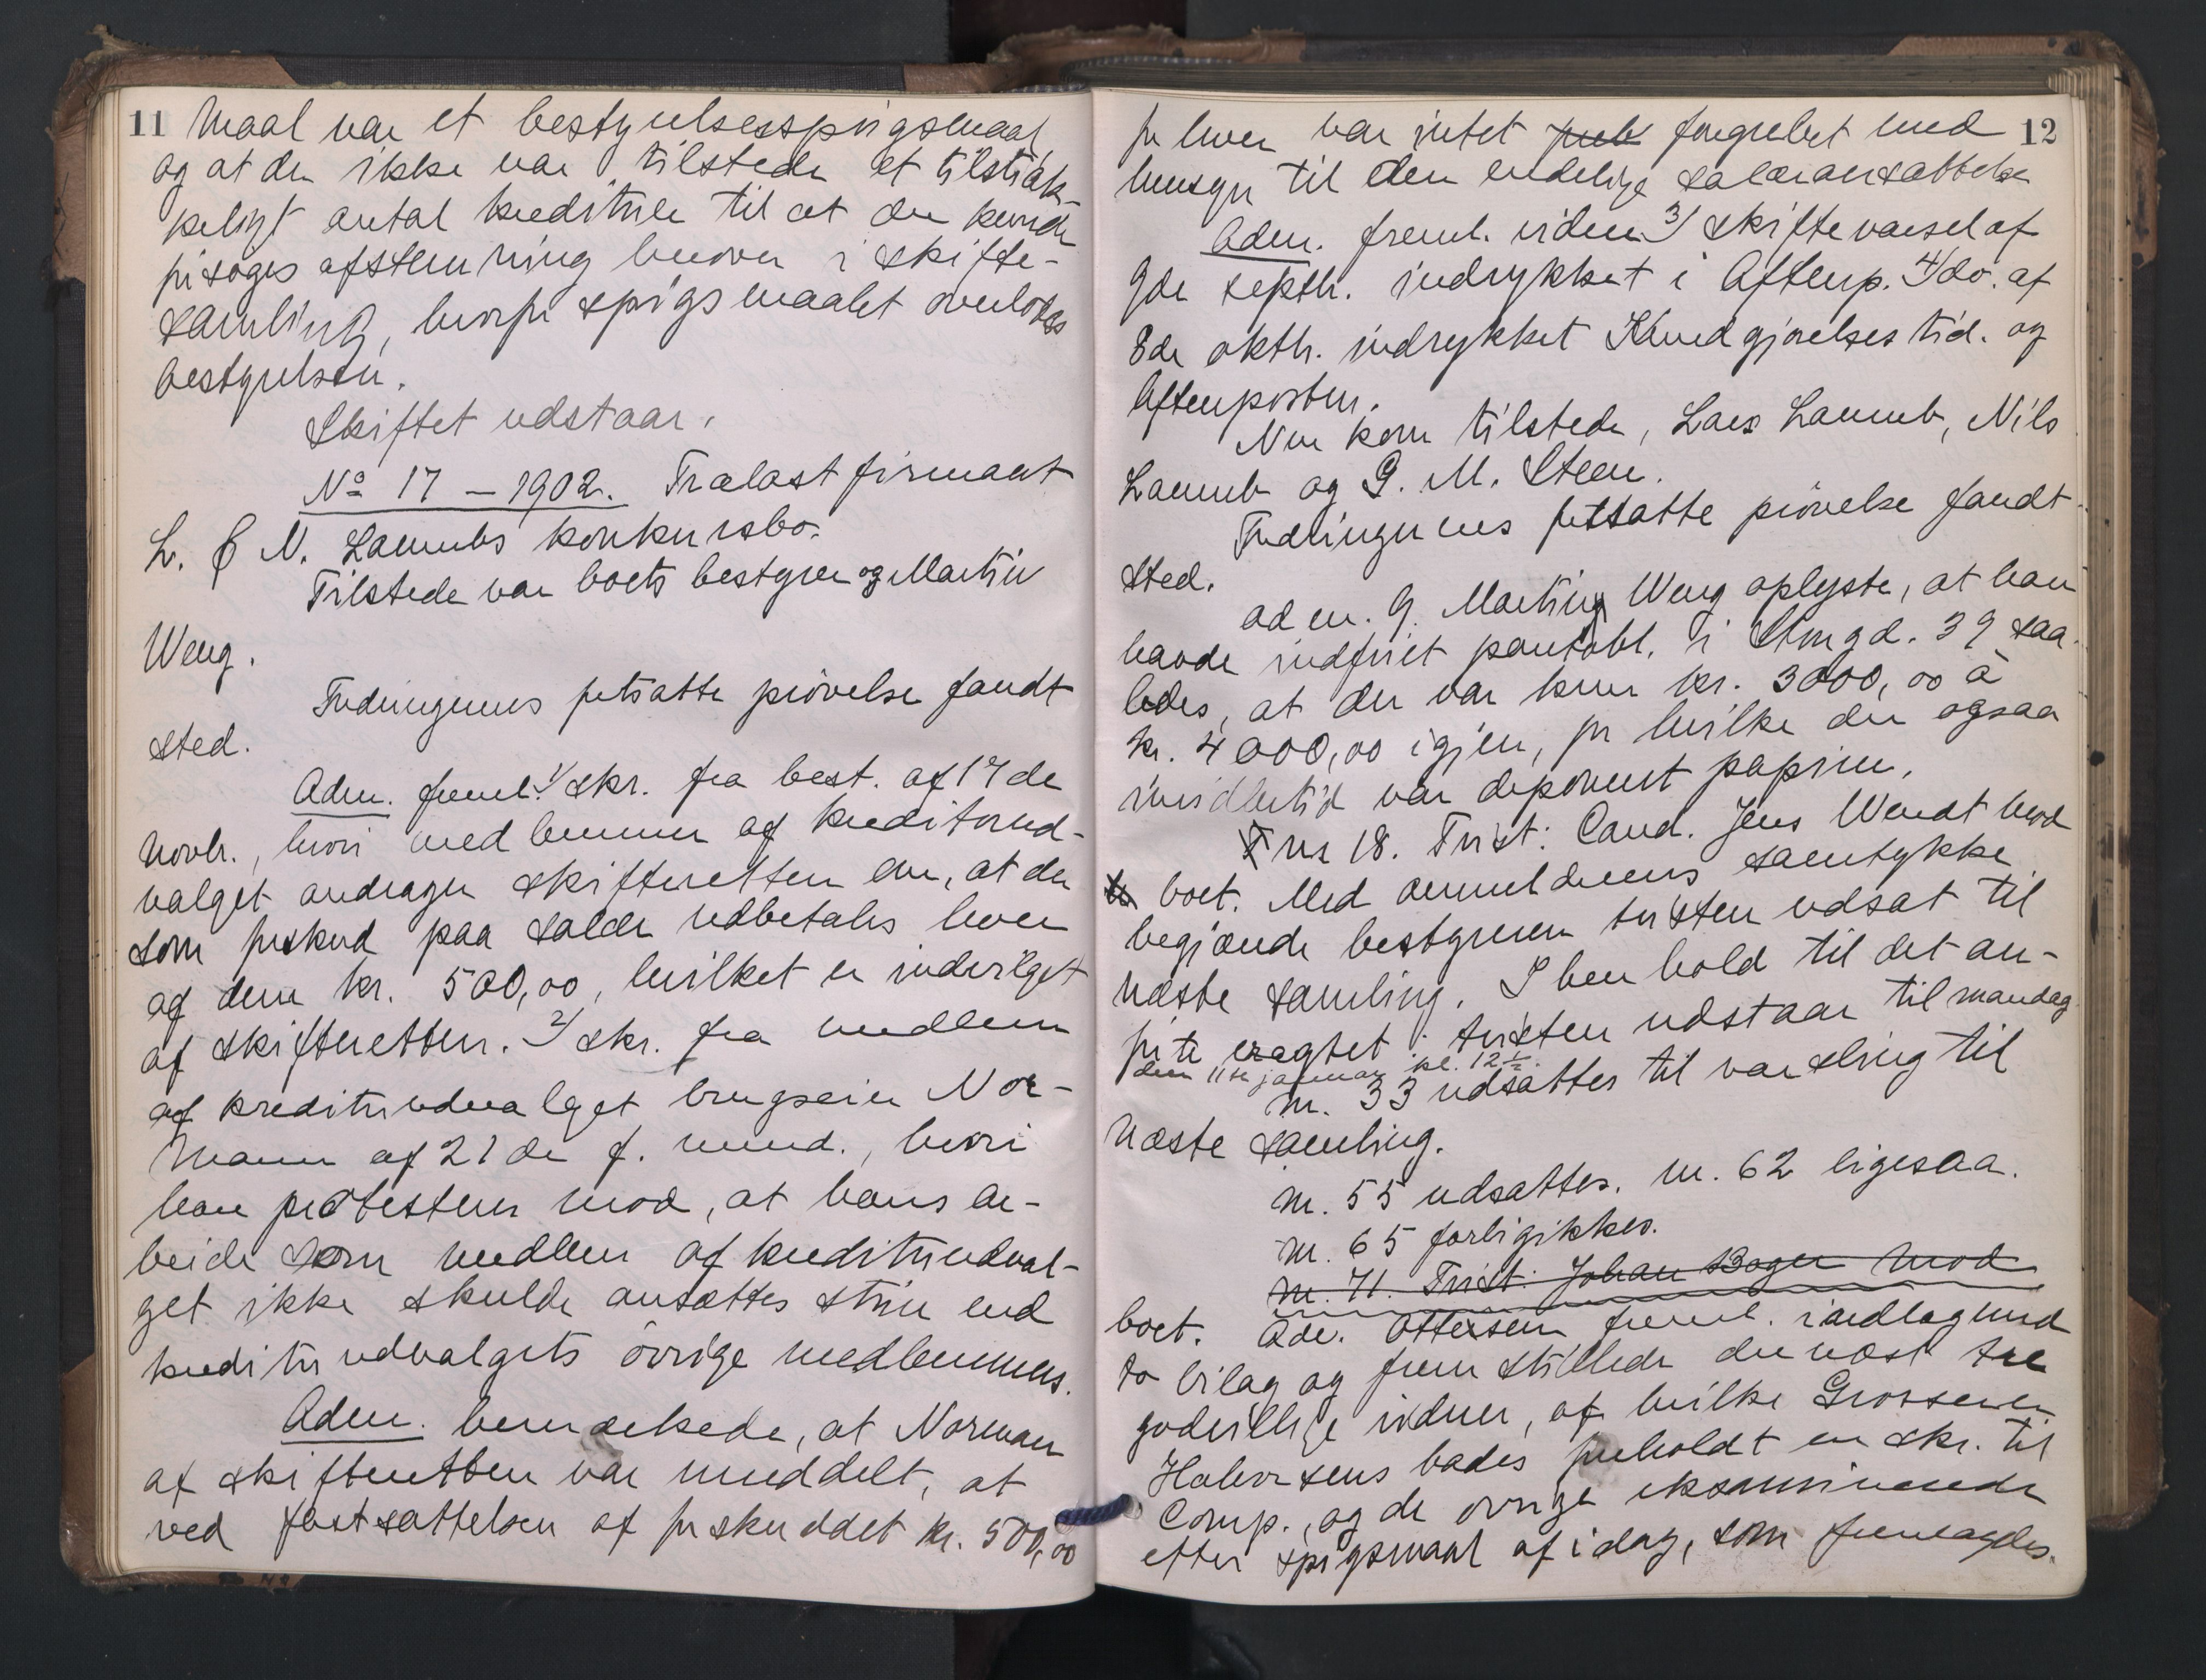 11 maal var et bestyrelsesspørgsmaal
og at der ikke var tilstede et tilstræk-
keligt antal kreditorer til at der kunde
foretages afstemning herover i skifte-
samling, hvorfor spørgsmaalet overlodes
bestyrelsen.
Skiftet udstaar.
No 17 – 1902. Trælastfirmaet
L. & N. Laumbs konkursbo.
Tilstede var boets bestyrer og Martin
Weng.
Fordringernes fortsatte prøvelse fandt
sted.
Adm. freml. 1/ skr. fra best. af 17de
novbr., hvori medlemmer af kreditorud-
valget andrager skifteretten om, at der
som forskud paa salær udbetales hver
af dem kr. 500,00, hvilket er indvilget
af skifteretten. 2/ skr. fra medlem
af kreditorudvalget brugseier Nor-
mann af 21de f. mnd., hvori
han protesterer mod, at hans ar-
beide som medlem af kreditorudval-
get ikke skulde ansættes større end
kreditorudvalgets øvrige medlemmers.
Adm. bemærkede, at Norman
af skifteretten var meddelt, at
ved fastsættelsen af forskuddet kr. 500,00
12
for hver var intet foregrebet med
hensyn til den endelige salæransættelse
Adm. freml. videre 3/ skiftevarsel af
9de septbr. indrykket i Aftenp. 4/ do. af
8de oktbr. indrykket Kundgjørelsestid. og
Aftenposten.
Nu kom tilstede, Lars Laumb, Nils
Laumb og G. M. Steen.
Fordringernes fortsatte prøvelse fandt
sted.
ad nr. 9. Martin Weng oplyste, at han
havde indfriet pantobl. i Strmgd. 39 saa-
ledes, at der var kun kr. 3000,00 à
kr. 4000,00 igjen, for hvilke der ogsaa
imidlertid var deponeret papirer.
nr 18. Tvist: Cand. Jens Wendt mod
boet. Med anmelderens samtykke
begjærede bestyreren tvisten udsat til
næste samling. I henhold til det an-
førte eragtet: tvisten udstaar til mandag
den 11te januar kl. 12½.
nr. 33 udsattes til varsling til
næste samling.
nr. 55 udsattes. nr. 62 ligesaa.
nr. 65 forligikkes.
nr. 71. Tvist: Johan Boger mod
boet. Adv. Ottersen freml. indlæg med
to bilag og fremstillede dernæst tre
godvillige vidner, af hvilke Grosserer
Halvorsens bades foreholdt en skr. til
Comp., og de øvrige eksamineredes
efter spørgsmaal af idag, som fremlagdes.